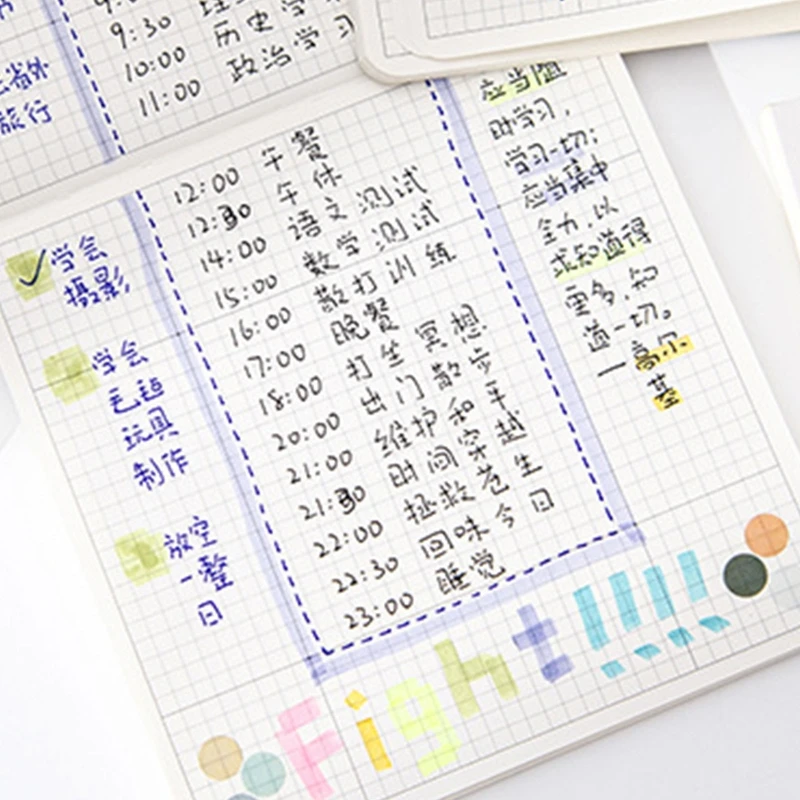 9:30
10:00 历史学
11:00 政治学习
省外
旅行
12:00 午餐
12:30 午休
14:00 语文测试
15:00 数学测试
16:00 散打训练
17:00 晚餐
18:00 打坐冥想
20:00 出门散步
21:00 维护和平
21:30 时间穿越
22:00 拯救苍生
22:30 回味今日
23:00 睡觉
学会
摄影
学会
毛毡
玩具
制作
放空
一整
日
应当随
时学习，
学习一切；
应当集中
全力，以
求知道得
更多，知
道一切。
—高尔
基
Fight!!!!